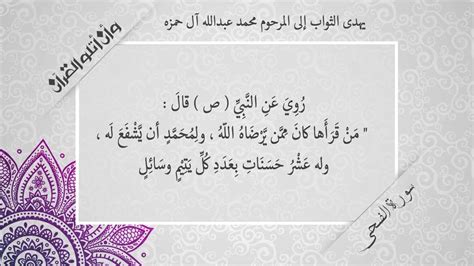 يهدى الثواب إلى المرحوم محمد عبدالله آل حمزه
وأن أتلو القرآن
رُوِيَ عَنِ النَّبِيِّ ( ص ) قالَ :
" مَنْ قَرَأَها كانَ مِمَّن يَّرْضَاهُ اللّهُ ، ولِمُحَمَّدٍ أن يَّشْفَعَ لَه ،
وله عَشْرُ حَسَنَاتٍ بِعَدَدِ كُلِّ يَتِيْمٍ وسَائِلٍ
سورة الضحى